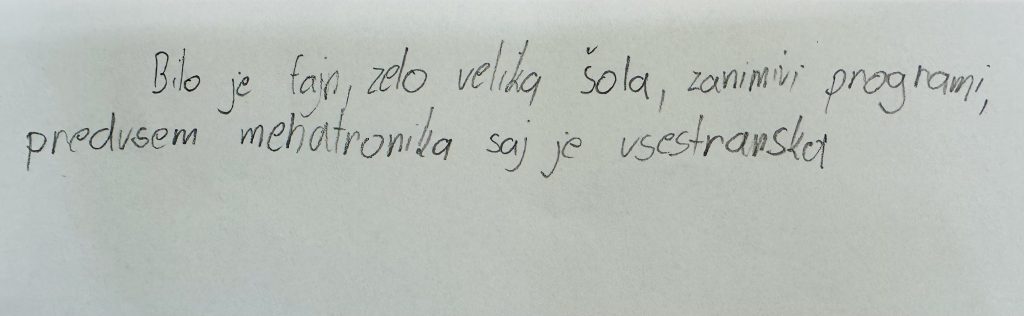 Bilo je fajn, zelo velika šola, zanimivi programi,
predvsem mehatronika saj je vsestranska